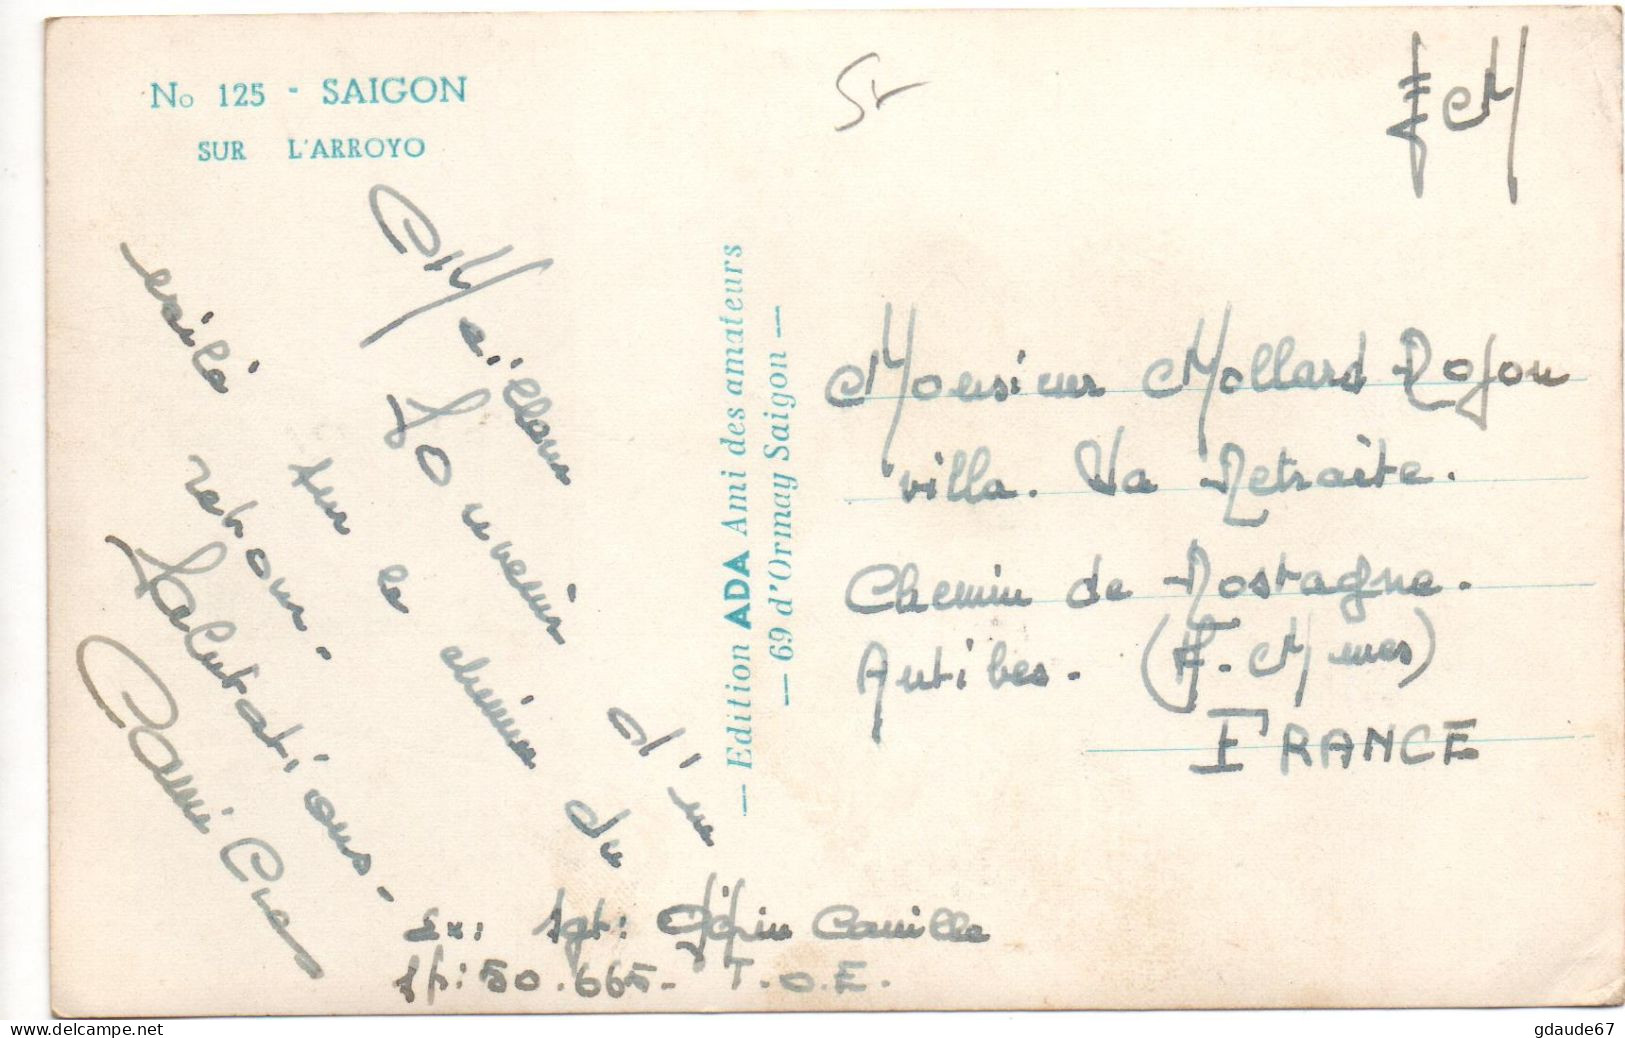 No 125 - SAIGON
SUR L'ARROYO
5r
F M
Meilleur
Souvenir d'un
exilé sur le chemin du
retour.
Salutations.
Camille
Ex: Sgt: Pépin Camille
Sp: 50.665- T.O.E.
— Edition ADA Ami des amateurs
— 69 d'Ormay Saigon —
Monsieur Mollard
villa. La Retraite.
Chemin de Rostagne.
Antibes. (A. Mmes)
FRANCE
gdaude67